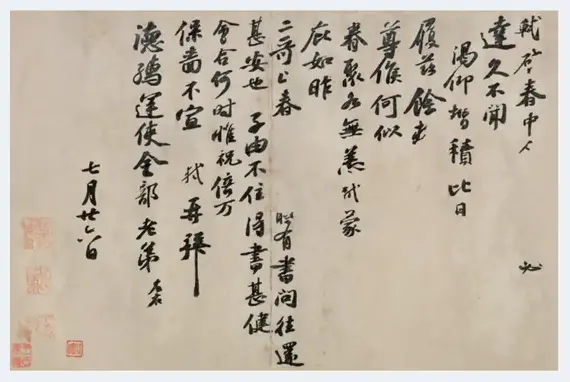 軾啓春中人 必
達久不聞
渴仰增積比日
履茲餘
尊候何似
眷聚各無恙軾蒙
庇如昨
二哥上春 時有書問往還
甚安也 子由不住得書甚健
會合何時惟祝倍万
保嗇不宣 軾再拜
德孺運使金部老弟 左右
七月廿六日